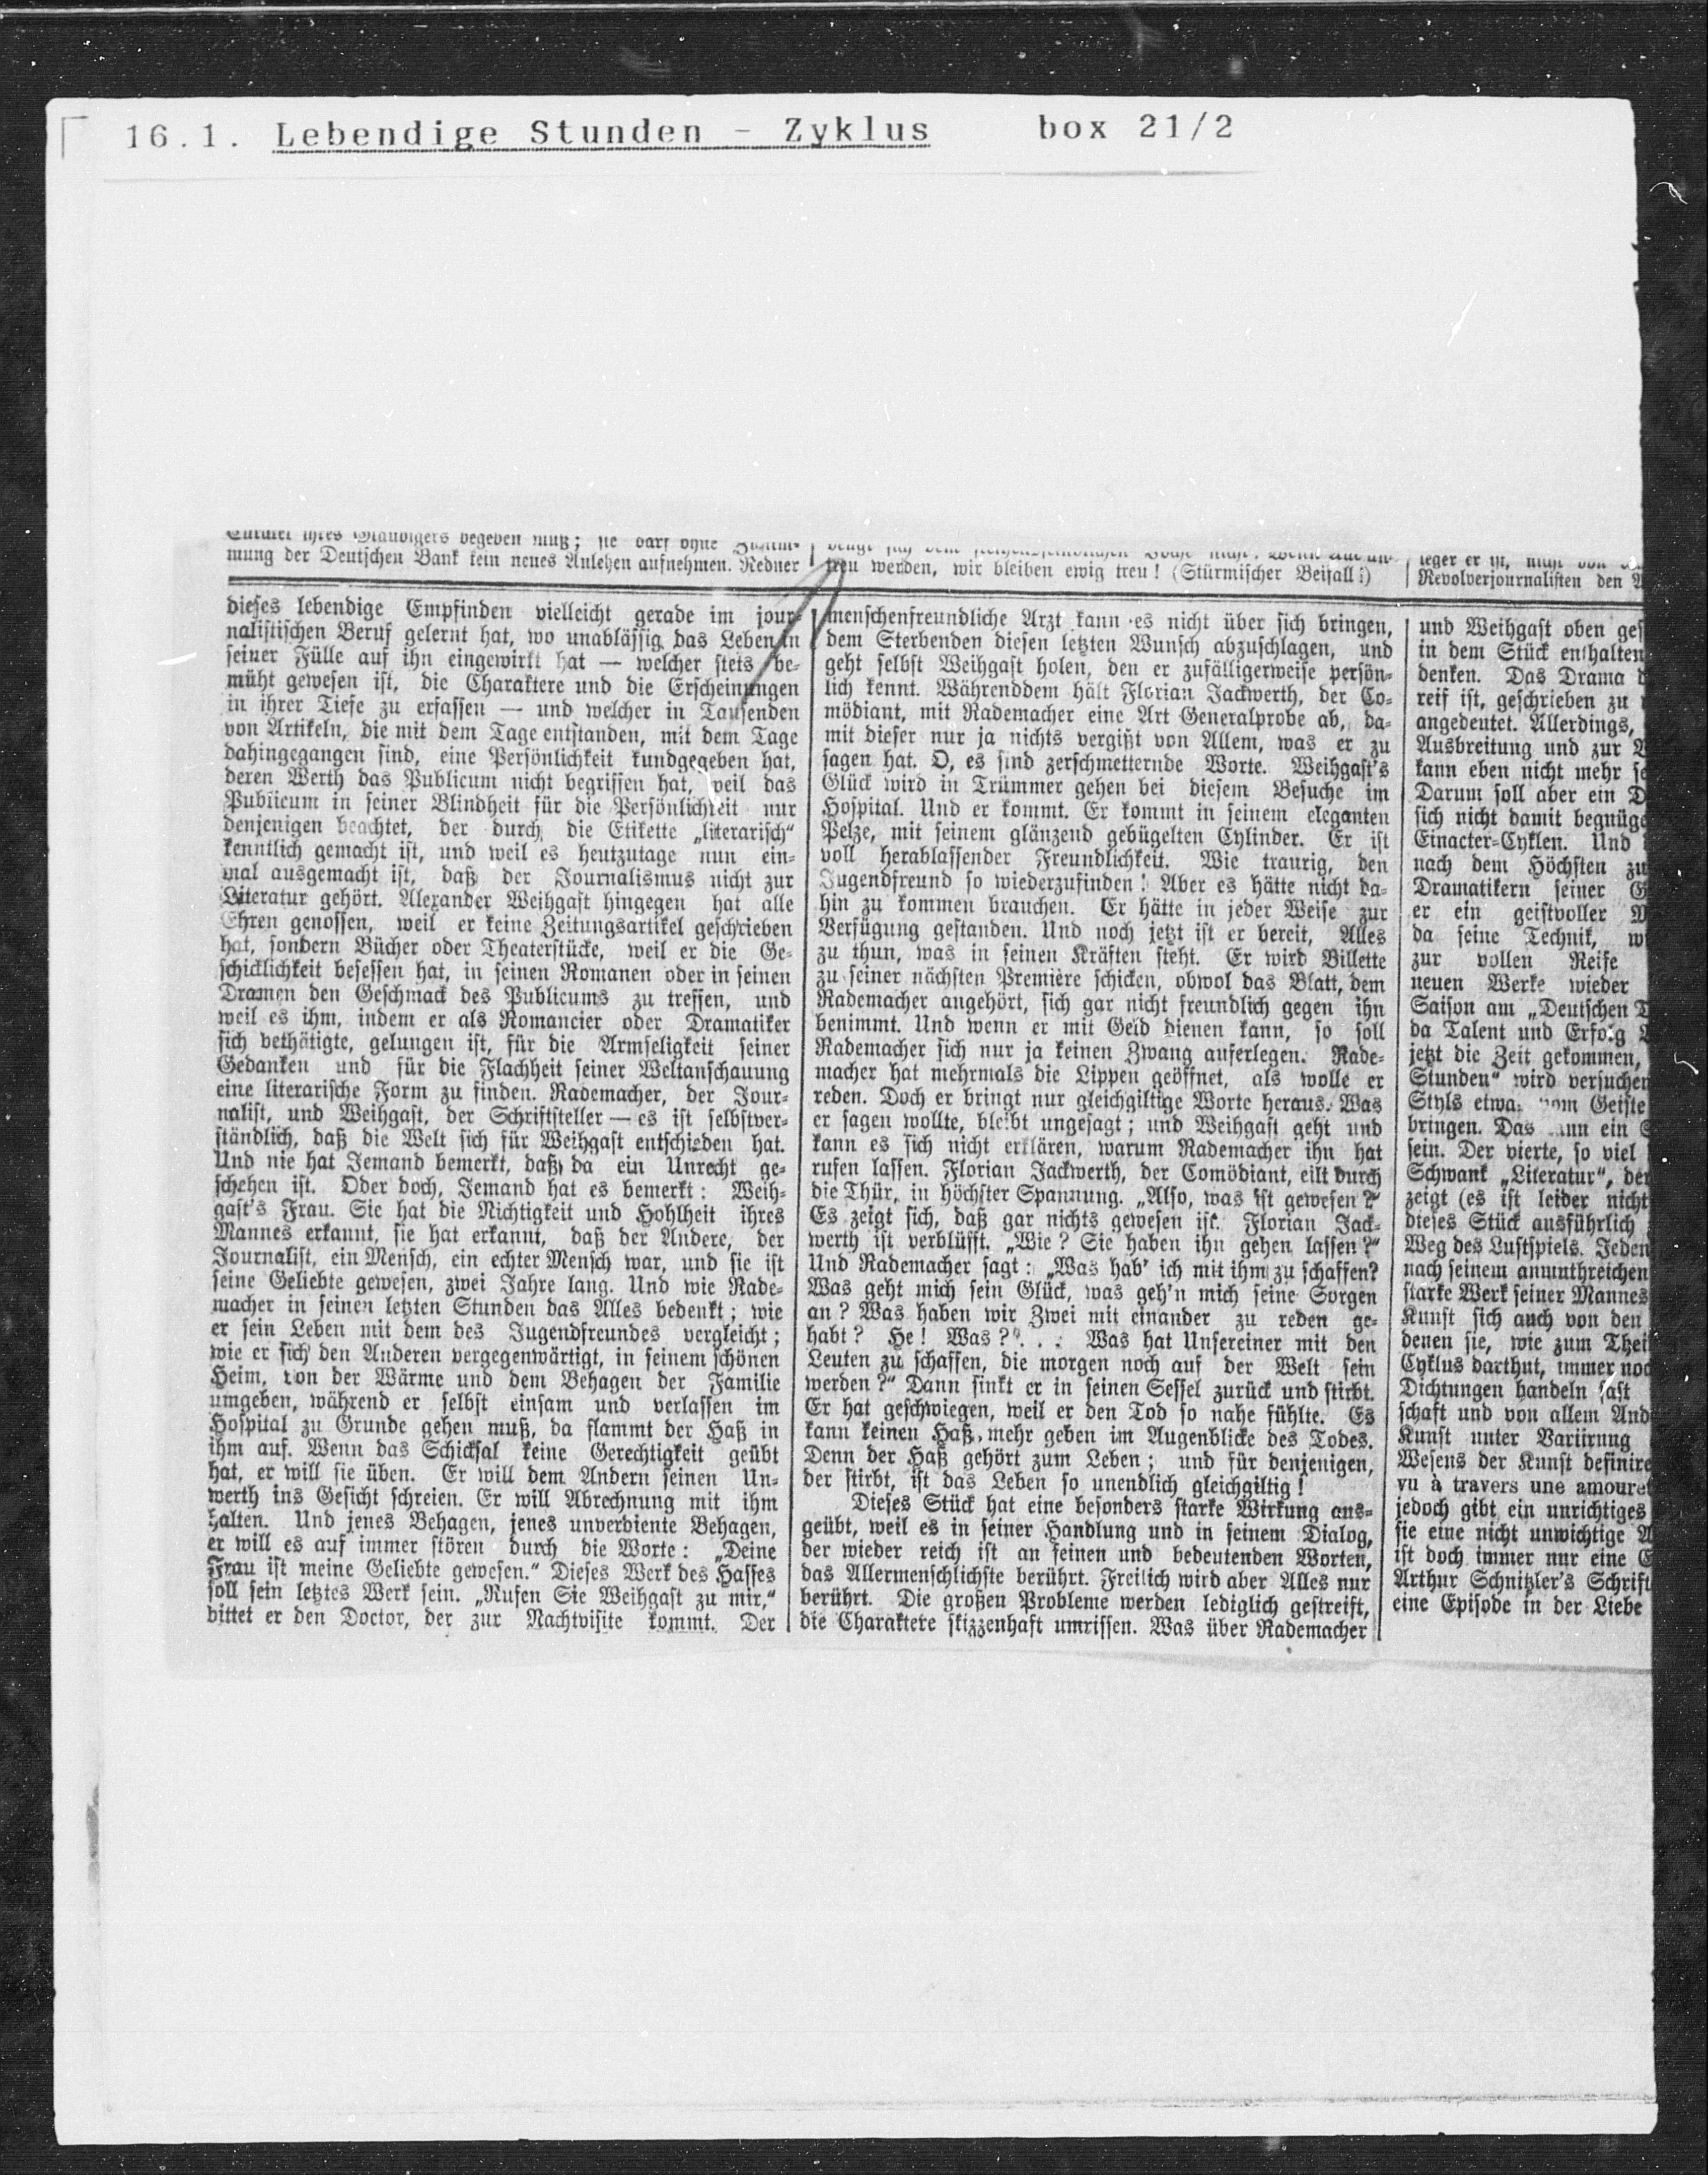 16.1. Lebendige Stunden - Zyklus box 21/2
ihres Gläubigers begeben muß; sie darf ohne
mung der Deutschen Bank kein neues Anlehen aufnehmen. Redner
dieses lebendige Empfinden vielleicht gerade im jour-
nalistischen Beruf gelernt hat, wo unablässig das Leben in
seiner Fülle auf ihn eingewirkt hat — welcher stets be-
müht gewesen ist, die Charaktere und die Erscheinungen
in ihrer Tiefe zu erfassen — und welcher in Tausenden
von Artikeln, die mit dem Tage entstanden, mit dem Tage
dahingegangen sind, eine Persönlichkeit kundgegeben hat,
deren Werth das Publicum nicht begriffen hat, weil das
Publicum in seiner Blindheit für die Persönlichkeit nur
denjenigen beachtet, der durch die Etikette „literarisch“
kenntlich gemacht ist, und weil es heutzutage nun ein-
mal ausgemacht ist, daß der Journalismus nicht zur
Literatur gehört. Alexander Weihgast hingegen hat alle
Ehren genossen, weil er keine Zeitungsartikel geschrieben
hat, sondern Bücher oder Theaterstücke, weil er die Ge-
schicklichkeit besessen hat, in seinen Romanen oder in seinen
Dramen den Geschmack des Publicums zu treffen, und
weil es ihm, indem er als Romancier oder Dramatiker
sich bethätigte, gelungen ist, für die Armseligkeit seiner
Gedanken und für die Flachheit seiner Weltanschauung
eine literarische Form zu finden. Rademacher, der Jour-
nalist, und Weihgast, der Schriftsteller — es ist selbstver-
ständlich, daß die Welt sich für Weihgast entschieden hat.
Und nie hat Jemand bemerkt, daß da ein Unrecht ge-
schehen ist. Oder doch, Jemand hat es bemerkt: Weih-
gast's Frau. Sie hat die Nichtigkeit und Hohlheit ihres
Mannes erkannt, sie hat erkannt, daß der Andere, der
Journalist, ein Mensch, ein echter Mensch war, und sie ist
seine Geliebte gewesen, zwei Jahre lang. Und wie Rade-
macher in seinen letzten Stunden das Alles bedenkt; wie
er sein Leben mit dem des Jugendfreundes vergleicht;
wie er sich den Anderen vergegenwärtigt, in seinem schönen
Heim, von der Wärme und dem Behagen der Familie
umgeben, während er selbst einsam und verlassen im
Hospital zu Grunde gehen muß, da flammt der Haß in
ihm auf. Wenn das Schicksal keine Gerechtigkeit geübt
hat, er will sie üben. Er will dem Andern seinen Un-
werth ins Gesicht schreien. Er will Abrechnung mit ihm
halten. Und jenes Behagen, jenes unverdiente Behagen,
er will es auf immer stören durch die Worte: „Deine
Frau ist meine Geliebte gewesen.“ Dieses Werk des Hasses
soll sein letztes Werk sein. „Rufen Sie Weihgast zu mir,“
bittet er den Doctor, der zur Nachtvisite kommt. Der
treu werden, wir bleiben ewig treu! (Stürmischer Beifall!)
menschenfreundliche Arzt kann es nicht über sich bringen,
dem Sterbenden diesen letzten Wunsch abzuschlagen, und
geht selbst Weihgast holen, den er zufälligerweise persön-
lich kennt. Währenddem hält Florian Jackwerth, der Co-
mödiant, mit Rademacher eine Art Generalprobe ab, da-
mit dieser nur ja nichts vergißt von Allem, was er zu
sagen hat. O, es sind zerschmetternde Worte. Weihgast's
Glück wird in Trümmer gehen bei diesem Besuche im
Hospital. Und er kommt. Er kommt in seinem eleganten
Pelze, mit seinem glänzend gebügelten Cylinder. Er ist
voll herablassender Freundlichkeit. Wie traurig, den
Jugendfreund so wiederzufinden! Aber es hätte nicht da-
hin zu kommen brauchen. Er hätte in jeder Weise zur
Verfügung gestanden. Und noch jetzt ist er bereit, Alles
zu thun, was in seinen Kräften steht. Er wird Billette
zu seiner nächsten Première schicken, obwol das Blatt, dem
Rademacher angehört, sich gar nicht freundlich gegen ihn
benimmt. Und wenn er mit Geld dienen kann, so soll
Rademacher sich nur ja keinen Zwang auferlegen. Rade-
macher hat mehrmals die Lippen geöffnet, als wolle er
reden. Doch er bringt nur gleichgiltige Worte heraus. Was
er sagen wollte, bleibt ungesagt; und Weihgast geht und
kann es sich nicht erklären, warum Rademacher ihn hat
rufen lassen. Florian Jackwerth, der Comödiant, eilt durch
die Thür, in höchster Spannung. „Also, was ist gewesen?“
Es zeigt sich, daß gar nichts gewesen ist. Florian Jack-
werth ist verblüfft. „Wie? Sie haben ihn gehen lassen?“
Und Rademacher sagt: „Was hab' ich mit ihm zu schaffen?
Was geht mich sein Glück, was geh'n mich seine Sorgen
an? Was haben wir Zwei mit einander zu reden ge-
habt? He! Was?“ . . . Was hat Unsereiner mit den
Leuten zu schaffen, die morgen noch auf der Welt sein
werden?“ Dann sinkt er in seinen Sessel zurück und stirbt.
Er hat geschwiegen, weil er den Tod so nahe fühlte. Es
kann keinen Haß mehr geben im Augenblicke des Todes.
Denn der Haß gehört zum Leben; und für denjenigen,
der stirbt, ist das Leben so unendlich gleichgiltig!
Dieses Stück hat eine besonders starke Wirkung aus-
geübt, weil es in seiner Handlung und in seinem Dialog,
der wieder reich ist an feinen und bedeutenden Worten,
das Allermenschlichste berührt. Freilich wird aber Alles nur
berührt. Die großen Probleme werden lediglich gestreift,
die Charaktere skizzenhaft umrissen. Was über Rademacher
leger er ist, muß von
Revolverjournalisten den
und Weihgast oben ges
in dem Stück enthalten
denken. Das Drama d
reif ist, geschrieben zu
angedeutet. Allerdings,
Ausbreitung und zur
kann eben nicht mehr se
Darum soll aber ein D
sich nicht damit begnüge
Einacter-Cyklen. Und
nach dem Höchsten zu
Dramatikern seiner G
er ein geistvoller
da seine Technik, w
zur vollen Reife
neuen Werke wieder
Saison am „Deutschen T
da Talent und Erfolg
jetzt die Zeit gekommen,
Stunden“ wird versuchen
Styls etwa vom Geiste
bringen. Das kann ein
sein. Der vierte, so viel
Schwank „Literatur“, der
zeigt (es ist leider nicht
dieses Stück ausführlich
Weg des Lustspiels. Jeden
nach seinem anmuthreichen
starke Werk seiner Mannes
Kunst sich auch von den
denen sie, wie zum Theil
Cyklus darthut, immer noc
Dichtungen handeln fast
schaft und von allem And
Kunst unter Variirung
Wesens der Kunst definire
vu à travers une amouret
jedoch gibt ein unrichtiges
sie eine nicht unwichtige A
ist doch immer nur eine E
Arthur Schnitzler's Schrift
eine Episode in der Liebe